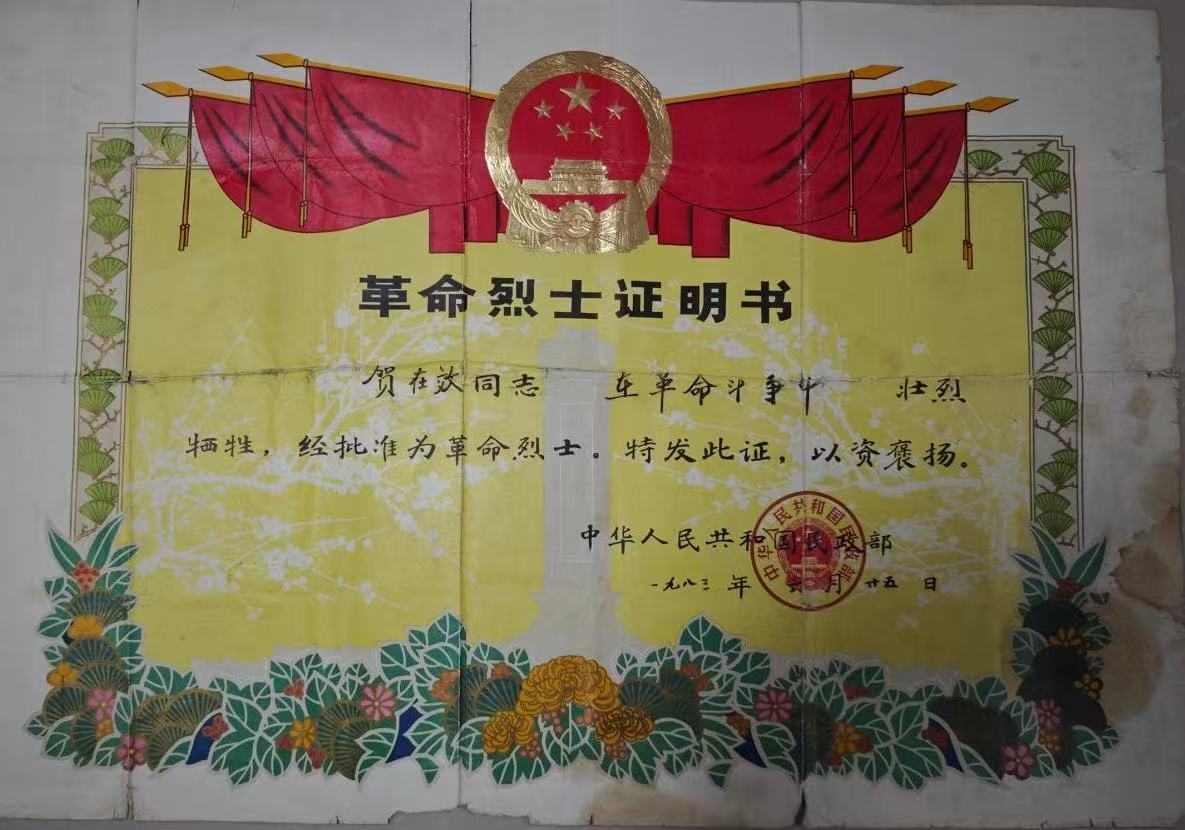 革命烈士证明书
贺在效同志 在革命斗争中 壮烈
牺牲，经批准为革命烈士。特发此证，以资褒扬。
中华人民共和国民政部
一九八三年 月廿五日
中华人民共和国民政部